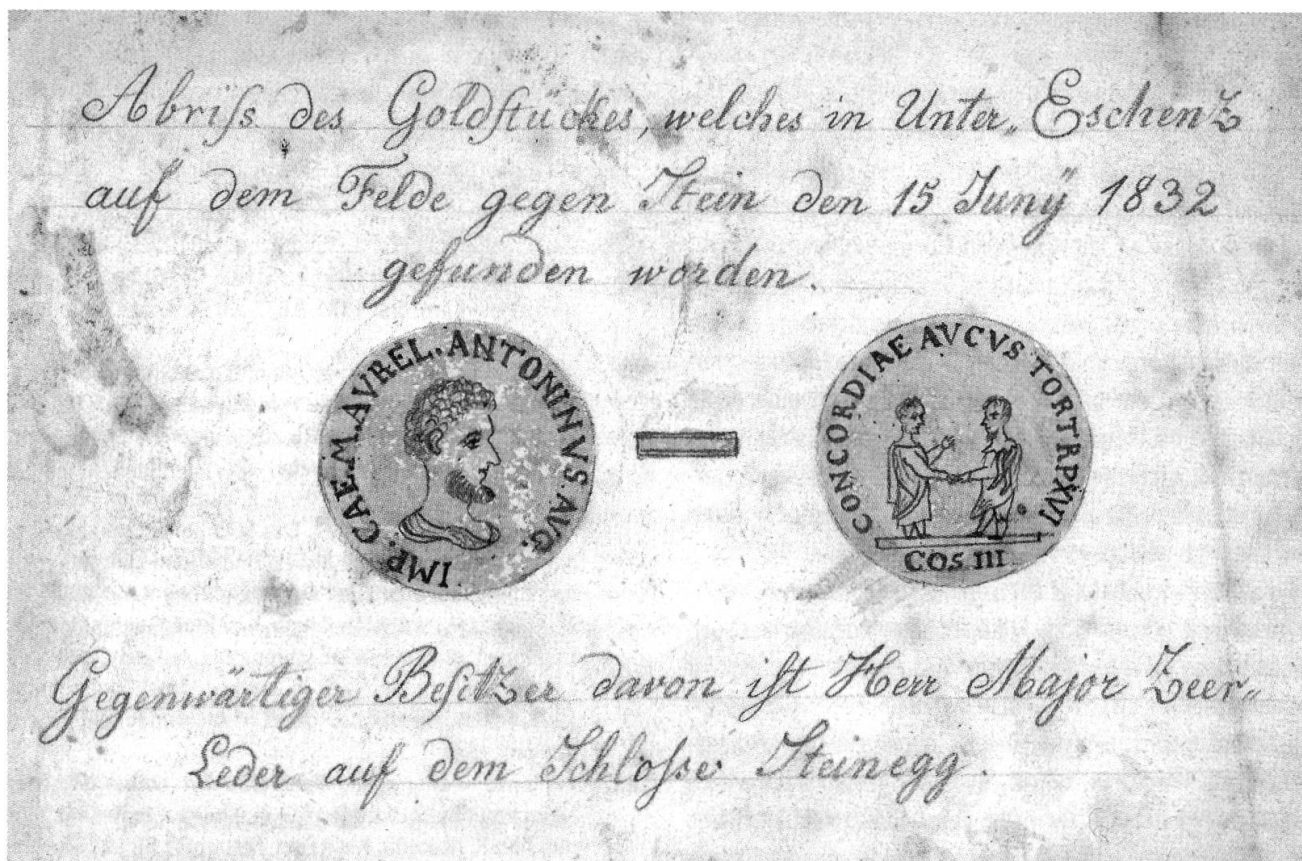 Abriſs des Goldſtückes, welches in Unter„ Eschenz
auf dem Felde gegen Stein den 15 Junÿ 1832
gefunden worden.
IMP. CAE.M. AVREL. ANTONINVS. AVG.
CONCORDIAE AVCVS TORTRPXVI
COS III
Gegenwärtiger Beſitzer davon iſt Herr Major Zeer„
Leder auf dem Schloſse Steinegg.